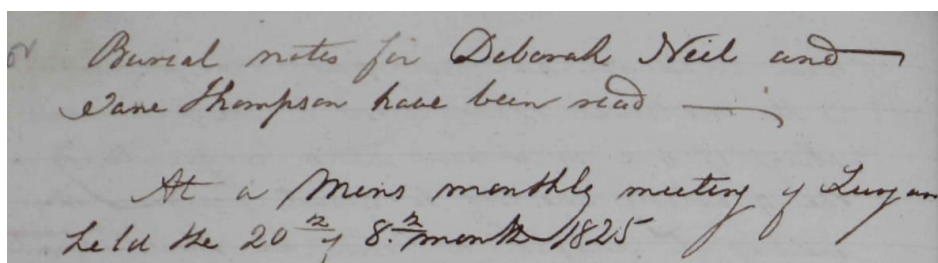 Burial notes for Deborah Neil and
Jane Thompson have been read
At a Mens monthly meeting of Lurgan
held the 20th of 8th month 1825